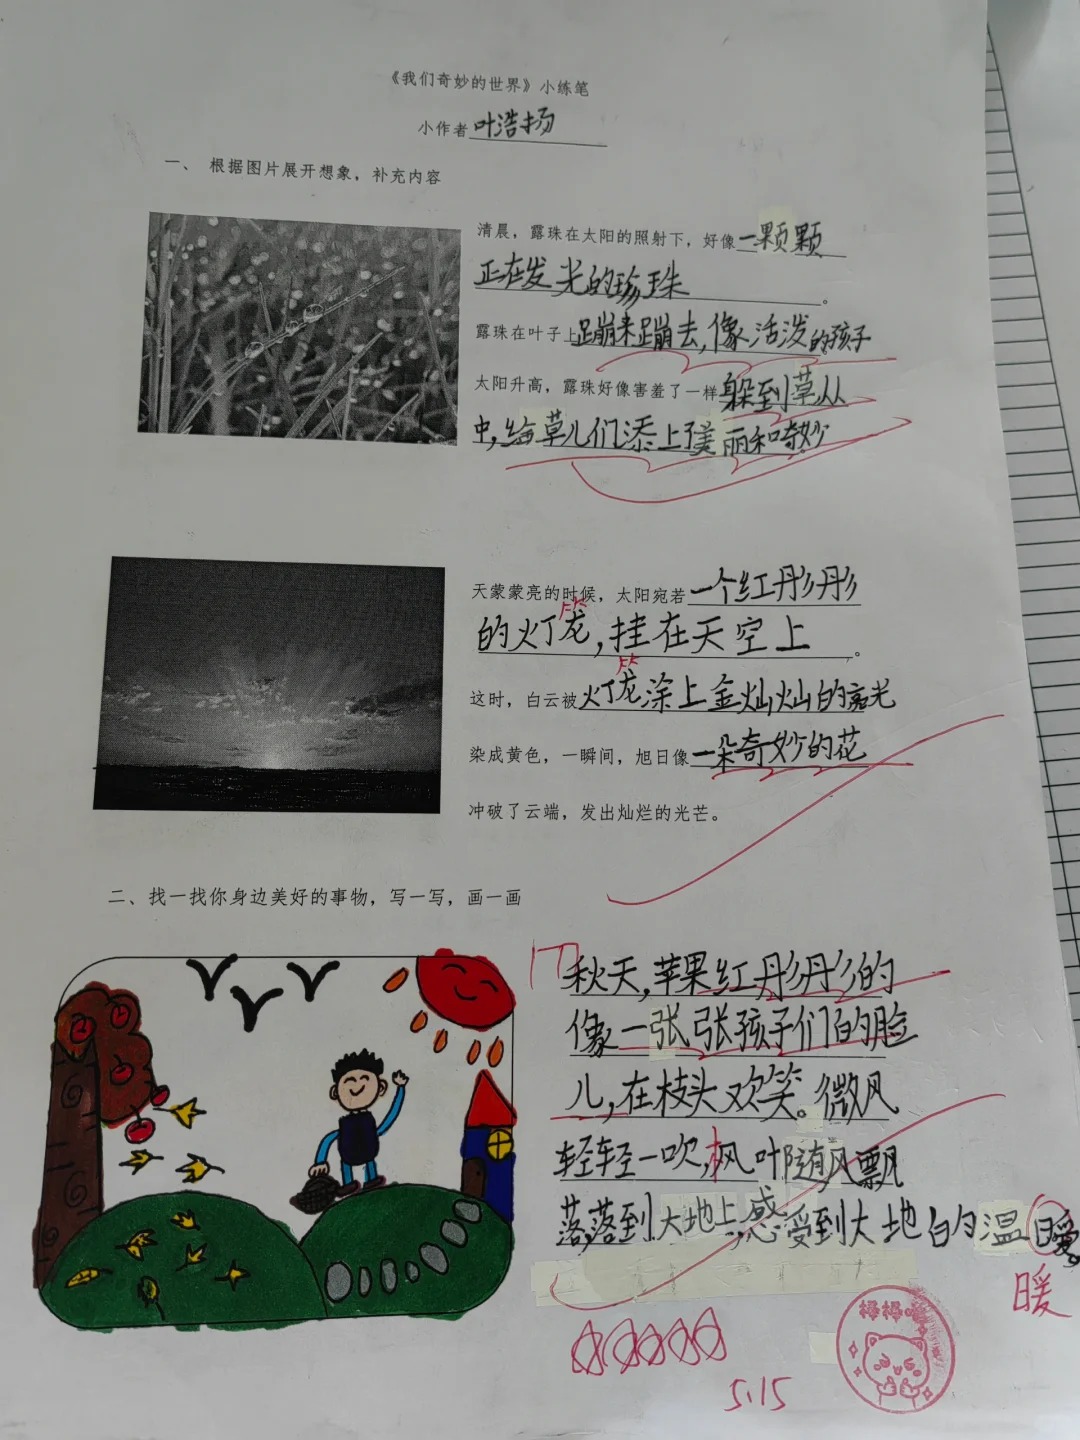 《我们奇妙的世界》小练笔
小作者叶浩扬
一、 根据图片展开想象，补充内容
清晨，露珠在太阳的照射下，好像一颗颗
正在发光的珍珠。
露珠在叶子上蹦来蹦去,像活泼的孩子
太阳升高，露珠好像害羞了一样躲到草从
中,给草儿们添上了美丽和奇妙
天蒙蒙亮的时候，太阳宛若一个红彤彤
的灯笼,挂在天空上。
这时，白云被灯笼涂上金灿灿的亮光
染成黄色，一瞬间，旭日像一朵奇妙的花
冲破了云端，发出灿烂的光芒。
二、找一找你身边美好的事物，写一写，画一画
秋天,苹果红彤彤的
像一张张孩子们的脸
儿,在枝头欢笑。微风
轻轻一吹,枫叶随风飘
落,落到大地上,感受到大地的温暖。
暖
棒棒
5.15